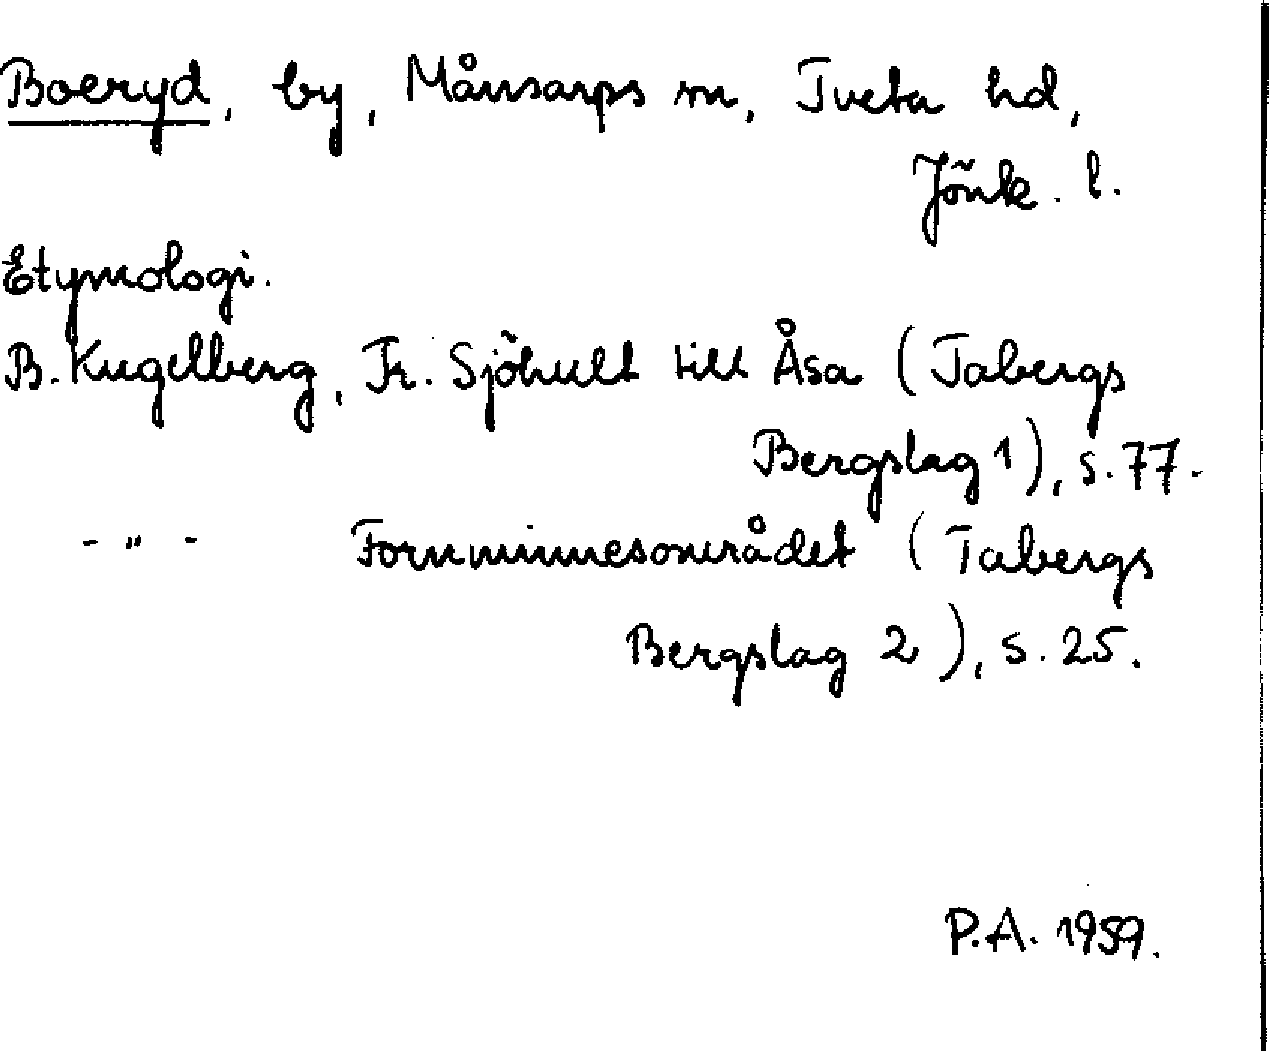 Boeryd, by, Månsarps sn, Tveta hd,
Jönk. l.
Etymologi.
B. Kugelberg, Fr. Sjöhult till Åsa (Tabergs
Bergslag 1), s. 77.
- " - Fornminnesområdet (Tabergs
Bergslag 2), s. 25.
P.A. 1959.